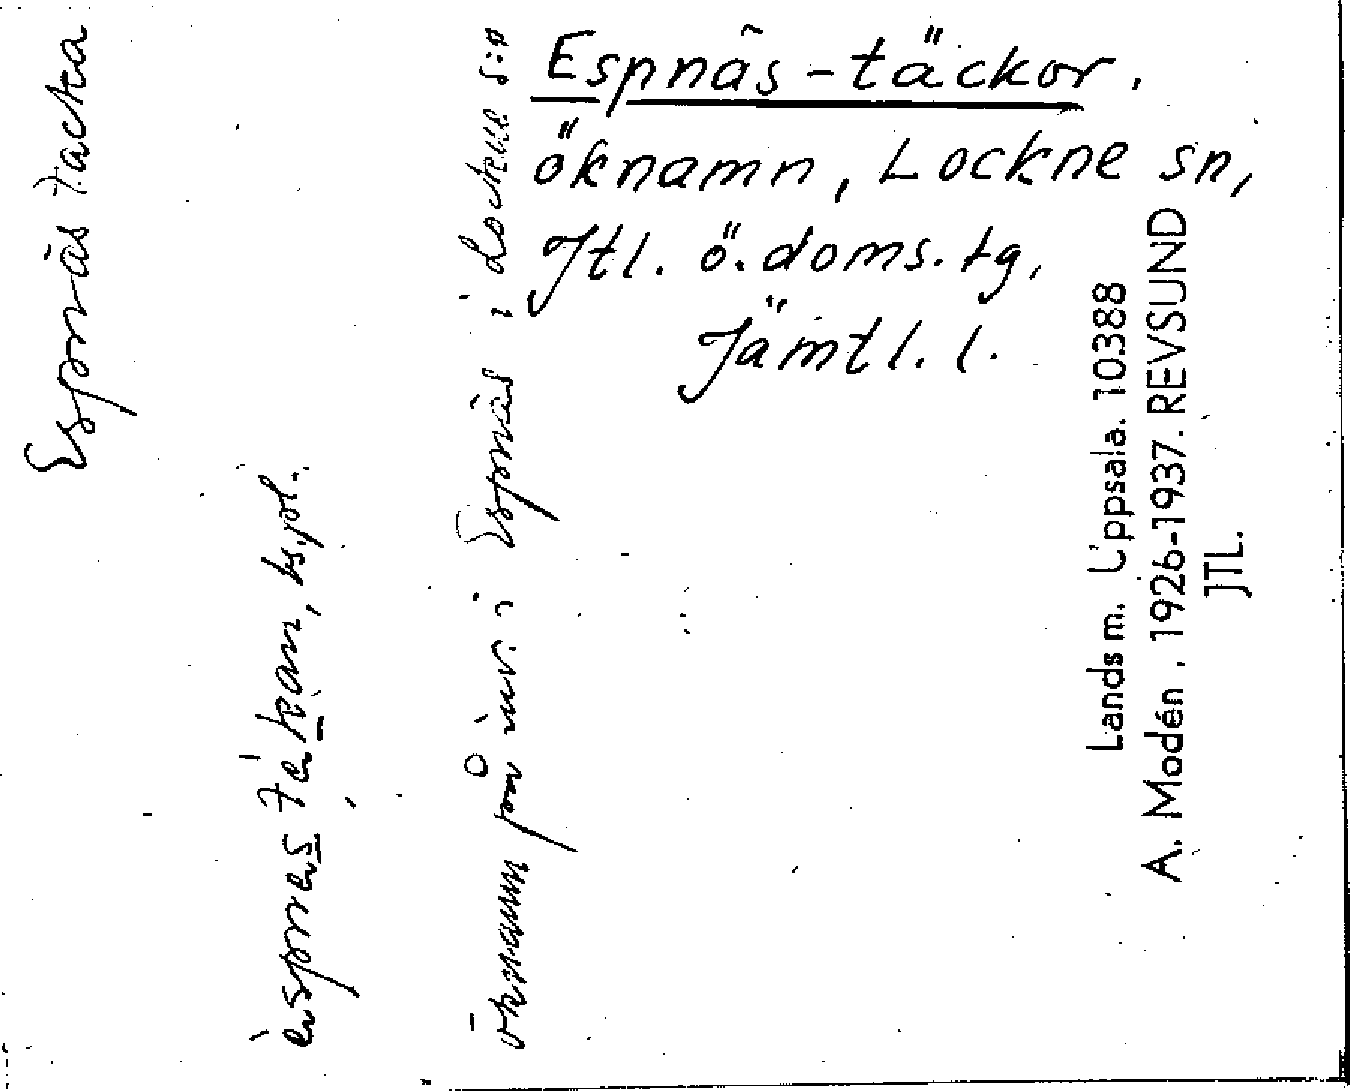 Espnäs-täckor.
öknamn, Lockne sn,
Jtl. ö. doms. tg,
Jämtl. l.
Espnäs tacka
bs. pl.
öknamn på inv. i Espnäs i Lockne s:n
Landsm. Uppsala. 10388
A. Modén, 1926-1937. REVSUND
JTL.